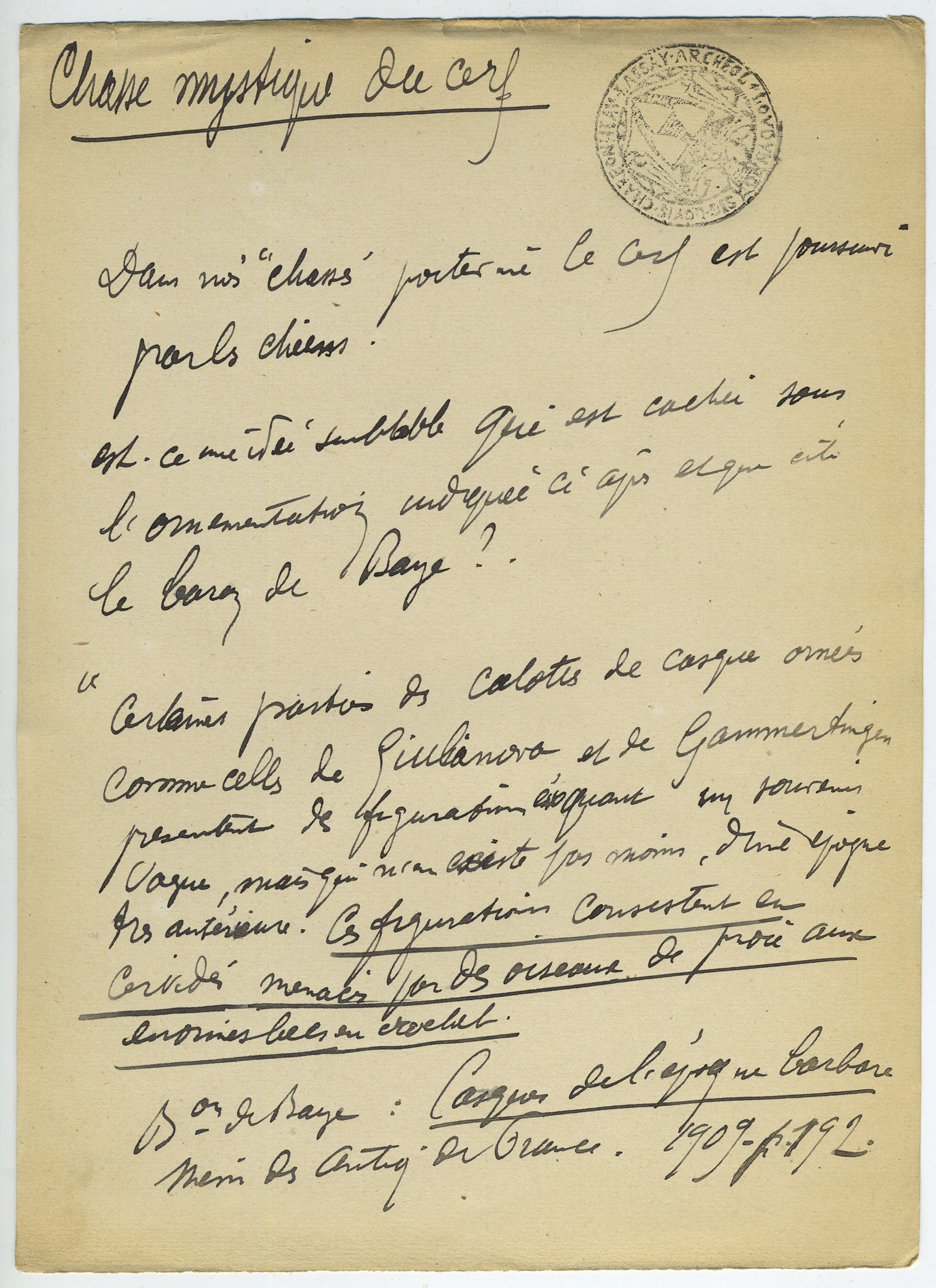 Chasse mystique du cerf
SIG·LOVIS·CHARBONNEAV·X·LASSAY·ARCHEOL·LOVDVN
Dans nos "chasses" poitevines le cerf est poursuivi
par les chiens.
est-ce une idée semblable qui est cachée sous
l'ornementation indiquée ci après et que cite
le baron de Baye ?.
" Certaines parties de calottes de casque ornées
comme celles de Giulianova et de Gammertingen
présentent des figurations évoquant un souvenir
vague, mais qui n'en existe pas moins, d'une époque
très antérieure. Ces figurations consistent en
Cervidés menacés par des oiseaux de proie aux
énormes becs en crochet.
Bon de Baye : Casques de l'époque barbare
Mém des Antiq de France. 1909 - p. 192.